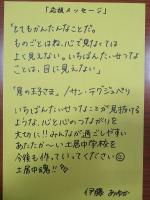 「応援メッセージ」
「とてもかんたんなことだ。
ものごとはね、心で見なくては
よく見えない。いちばんたいせつな
ことは、目に見えない」
「星の王子さま」／サン・テグジュペリ
いちばんたいせつなことが見抜ける
ような、心と心のつながりを
大切に!!みんなが過ごしやすい
あたたか〜い土居中学校を
今後も作っていってください☺
土居中魂!!
伊藤 あゆか